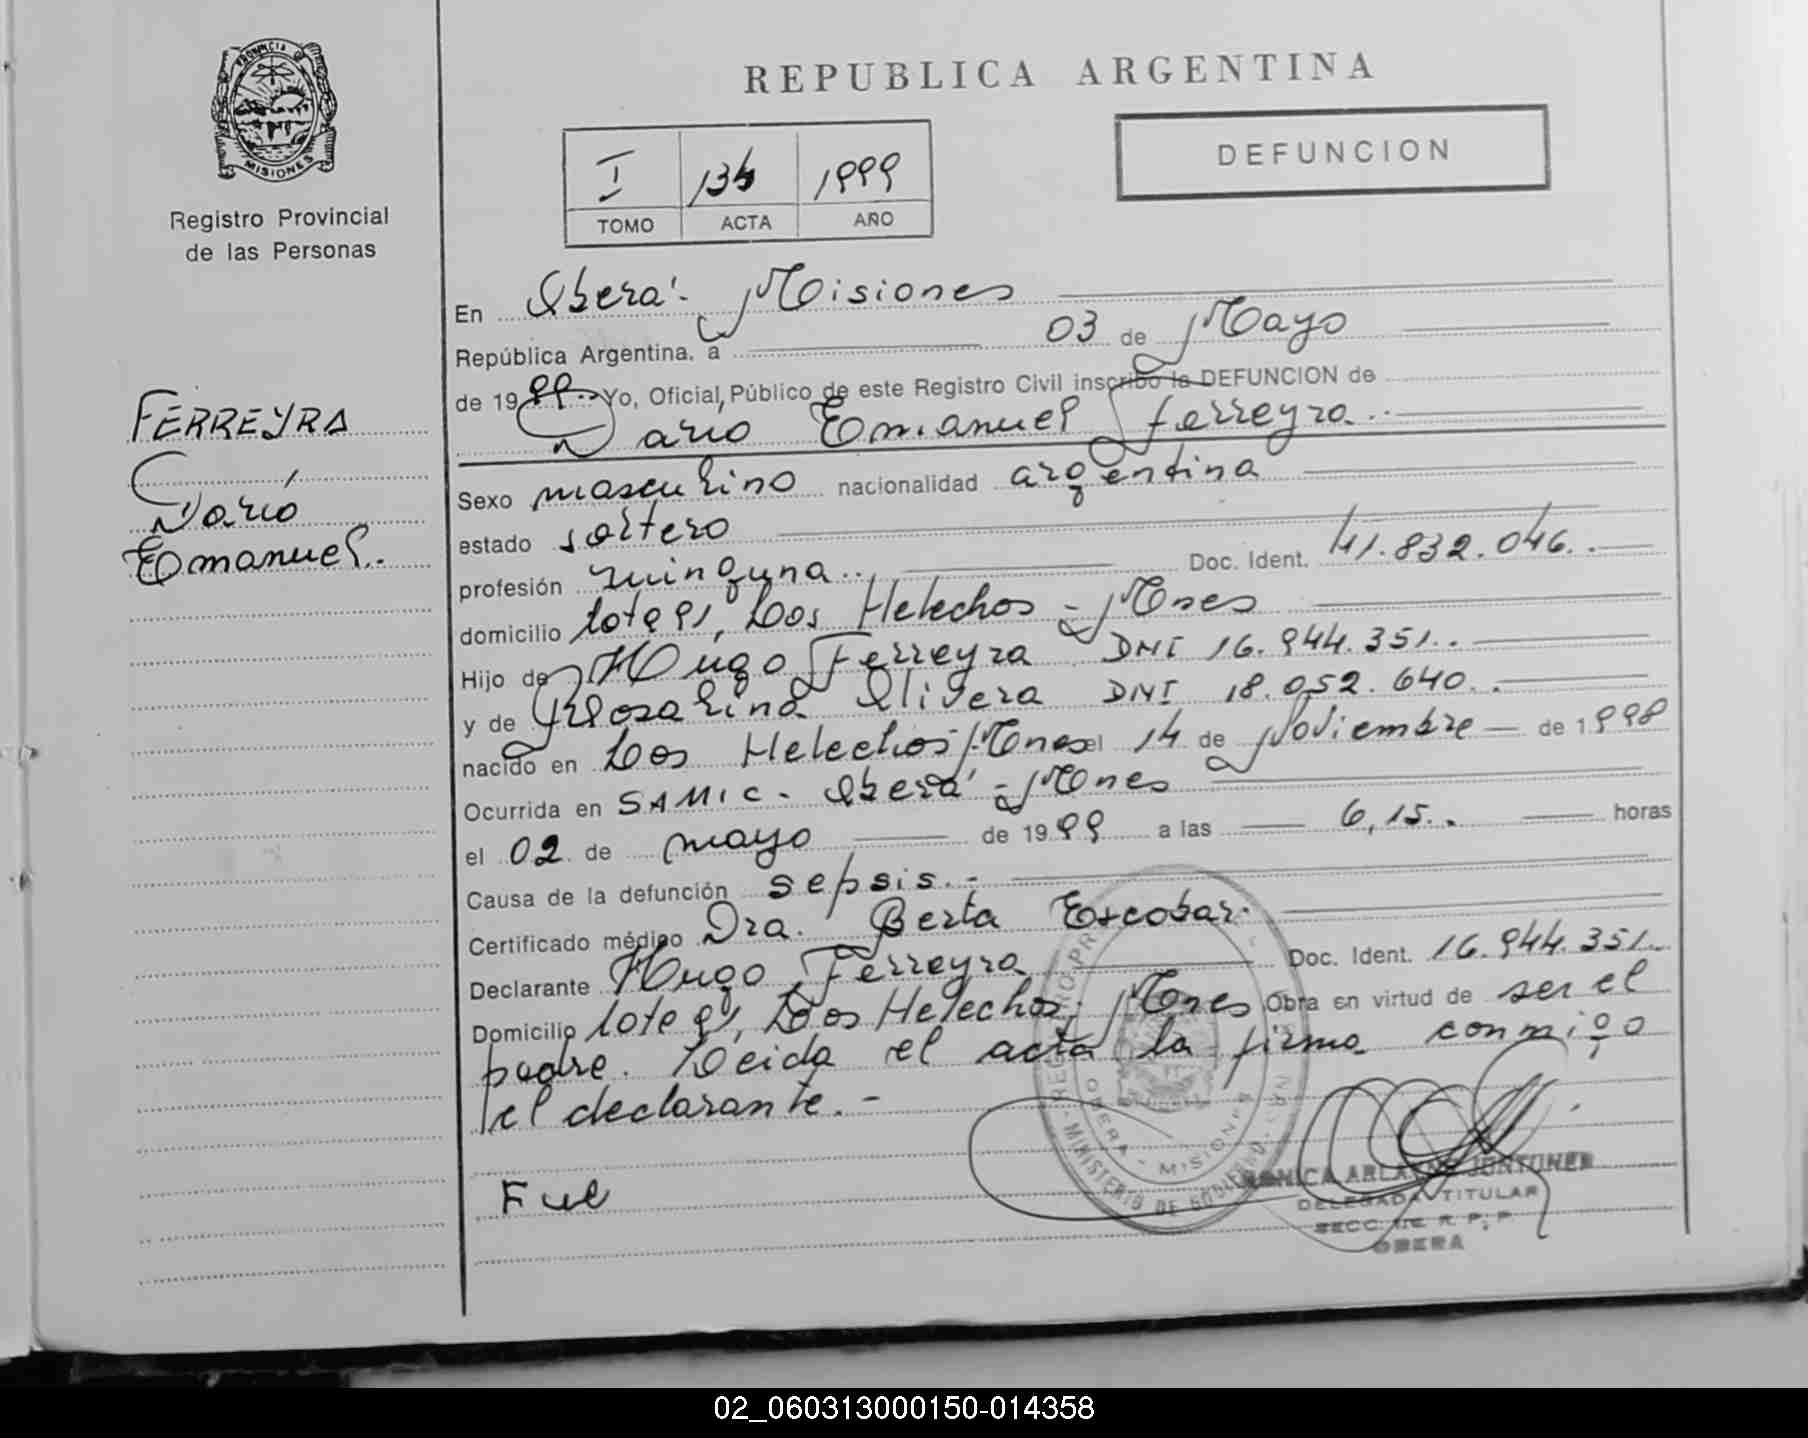 PROVINCIA DE
MISIONES
Registro Provincial
de las Personas
FERREYRA
Darío
Emanuel.
REPUBLICA ARGENTINA
DEFUNCION
I 134 1999
TOMO ACTA AÑO
En Oberá - Misiones
República Argentina, a 03 de Mayo
de 1999 Yo, Oficial Público de este Registro Civil inscribo la DEFUNCION de
Darío Emanuel Ferreyra.
Sexo masculino nacionalidad argentina
estado soltero
profesión ninguna.. Doc. Ident. 41.832.046.
domicilio lote 91, Los Helechos - Mnes
Hijo de Hugo Ferreyra DNI 16.944.351..
y de Rosalina Olivera DNI 18.052.640..
nacido en Los Helechos/Mnes el 14 de Noviembre de 1998
Ocurrida en SAMIC - Oberá - Mnes
el 02 de mayo de 1999 a las 6,15.. horas
Causa de la defunción sepsis.-
Certificado médico Dra. Berta Escobar.
Declarante Hugo Ferreyra Doc. Ident. 16.944.351..
Domicilio lote 91, Los Helechos, Mnes Obra en virtud de ser el
padre. Leida el acta la firma conmigo
el declarante.-
OBERA - MISIONES
MINISTERIO DE GOBIERNO
DELEGADA TITULAR
SECC. DE R. P. P.
OBERA
02_060313000150-014358